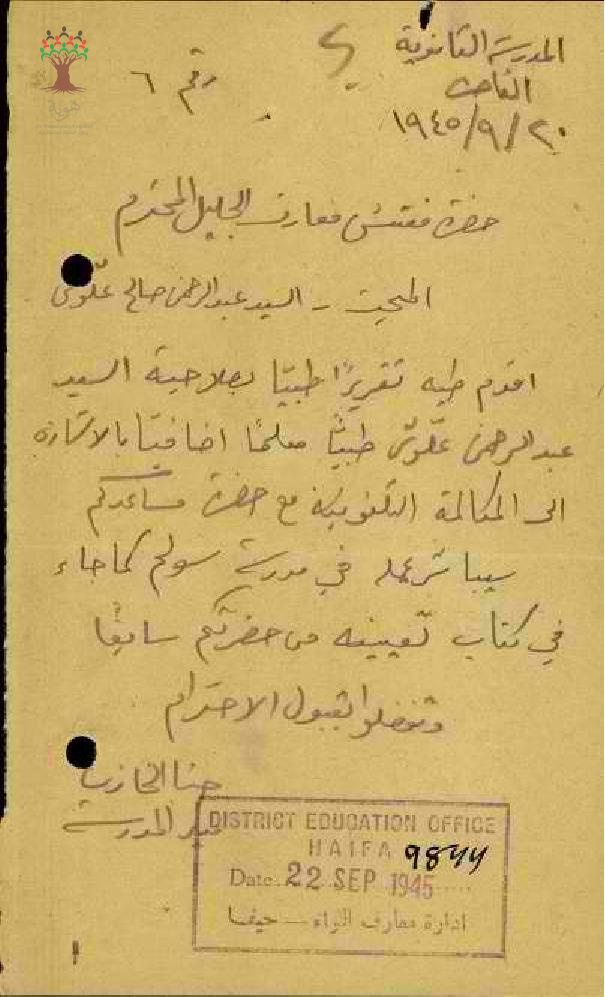 هوية
المدرسة الثانوية
الناصرة
١٩٤٥/٩/٢٠
رقم ٦
حضرة مفتش معارف الجليل المحترم
المبحث - السيد عبد الرحمن صالح علّوش
اقدم طيه تقريرًا طبيًا بصلاحية السيد
عبد الرحمن علّوش طبيًا معلمًا اضافيًا بالاشارة
الى المكالمة التلفونية مع حضرة مساعدكم
سيباشر عمله في مدرسة سولم كما جاء
في كتاب تعيينه من حضرتكم سابقًا
وتفضلوا بقبول الاحترام
حنا الخازن
مدير المدرسة
DISTRICT EDUCATION OFFICE
HAIFA
9844
Date 22 SEP 1945
ادارة معارف اللواء - حيفا